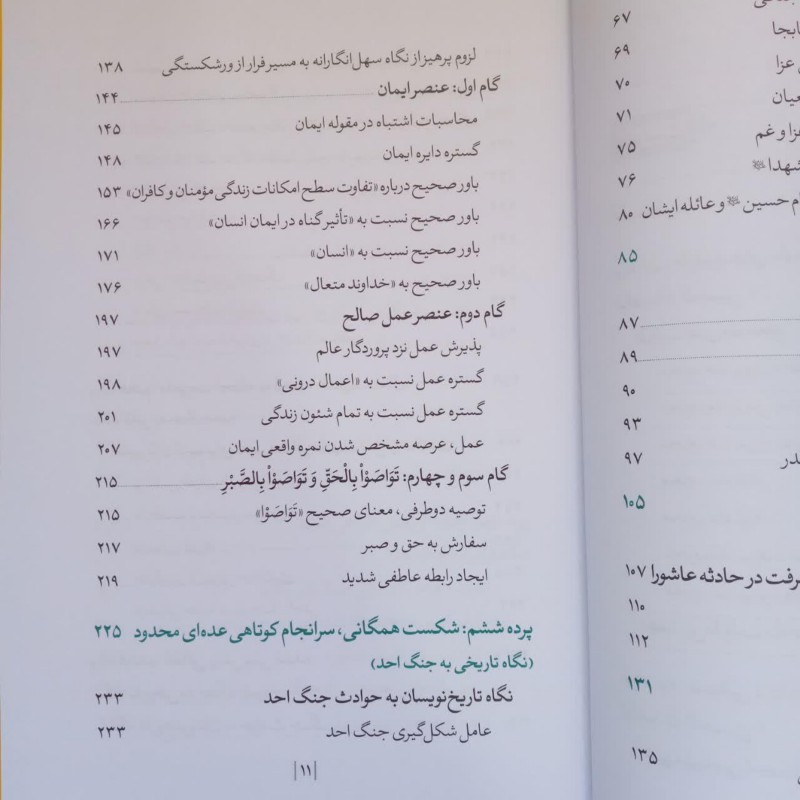 ۶۷
ابجا
۶۹
عزا
۷۰
عیان
۷۱
عزا و غم
۷۵
شهدا
۷۶
م حسین و عائله ایشان ۸۰
۸۵
۸۷
۸۹
۹۰
۹۳
در ۹۷
۱۰۵
رفت در حادثه عاشورا ۱۰۷
۱۱۰
۱۱۲
۱۳۱
۱۳۵
لزوم پرهیز از نگاه سهل‌انگارانه به مسیر فرار از ورشکستگی ۱۳۸
گام اول: عنصر ایمان ۱۴۴
محاسبات اشتباه در مقوله ایمان ۱۴۵
گستره دایره ایمان ۱۴۸
باور صحیح درباره «تفاوت سطح امکانات زندگی مؤمنان و کافران» ۱۵۳
باور صحیح نسبت به «تأثیر گناه در ایمان انسان» ۱۶۶
باور صحیح نسبت به «انسان» ۱۷۱
باور صحیح به «خداوند متعال» ۱۷۶
گام دوم: عنصر عمل صالح ۱۹۷
پذیرش عمل نزد پروردگار عالم ۱۹۷
گستره عمل نسبت به «اعمال درونی» ۱۹۸
گستره عمل نسبت به تمام شئون زندگی ۲۰۱
عمل، عرصه مشخص شدن نمره واقعی ایمان ۲۰۷
گام سوم و چهارم: تَوَاصَوْاْ بِالْحَقِّ وَ تَوَاصَوْاْ بِالصَّبْرِ ۲۱۵
توصیه دوطرفی، معنای صحیح «تَوَاصَوْا» ۲۱۵
سفارش به حق و صبر ۲۱۷
ایجاد رابطه عاطفی شدید ۲۱۹
پرده ششم: شکست همگانی، سرانجام کوتاهی عده‌ای محدود ۲۲۵
(نگاه تاریخی به جنگ احد)
نگاه تاریخ‌نویسان به حوادث جنگ احد ۲۳۳
عامل شکل‌گیری جنگ احد ۲۳۳
|۱۱|